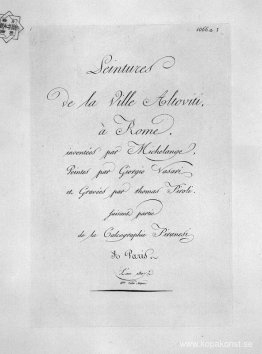 1066 a 1
Peintures
de la Ville Altoviti,
à Rome,
inventées par Michelange,
Peintes par Giorgio Vasari
et Gravées par thomas Piroli.
faisant partie
de la Calcographie Piranesi
à Paris.
L'an 1807.
www.kopakonst.se